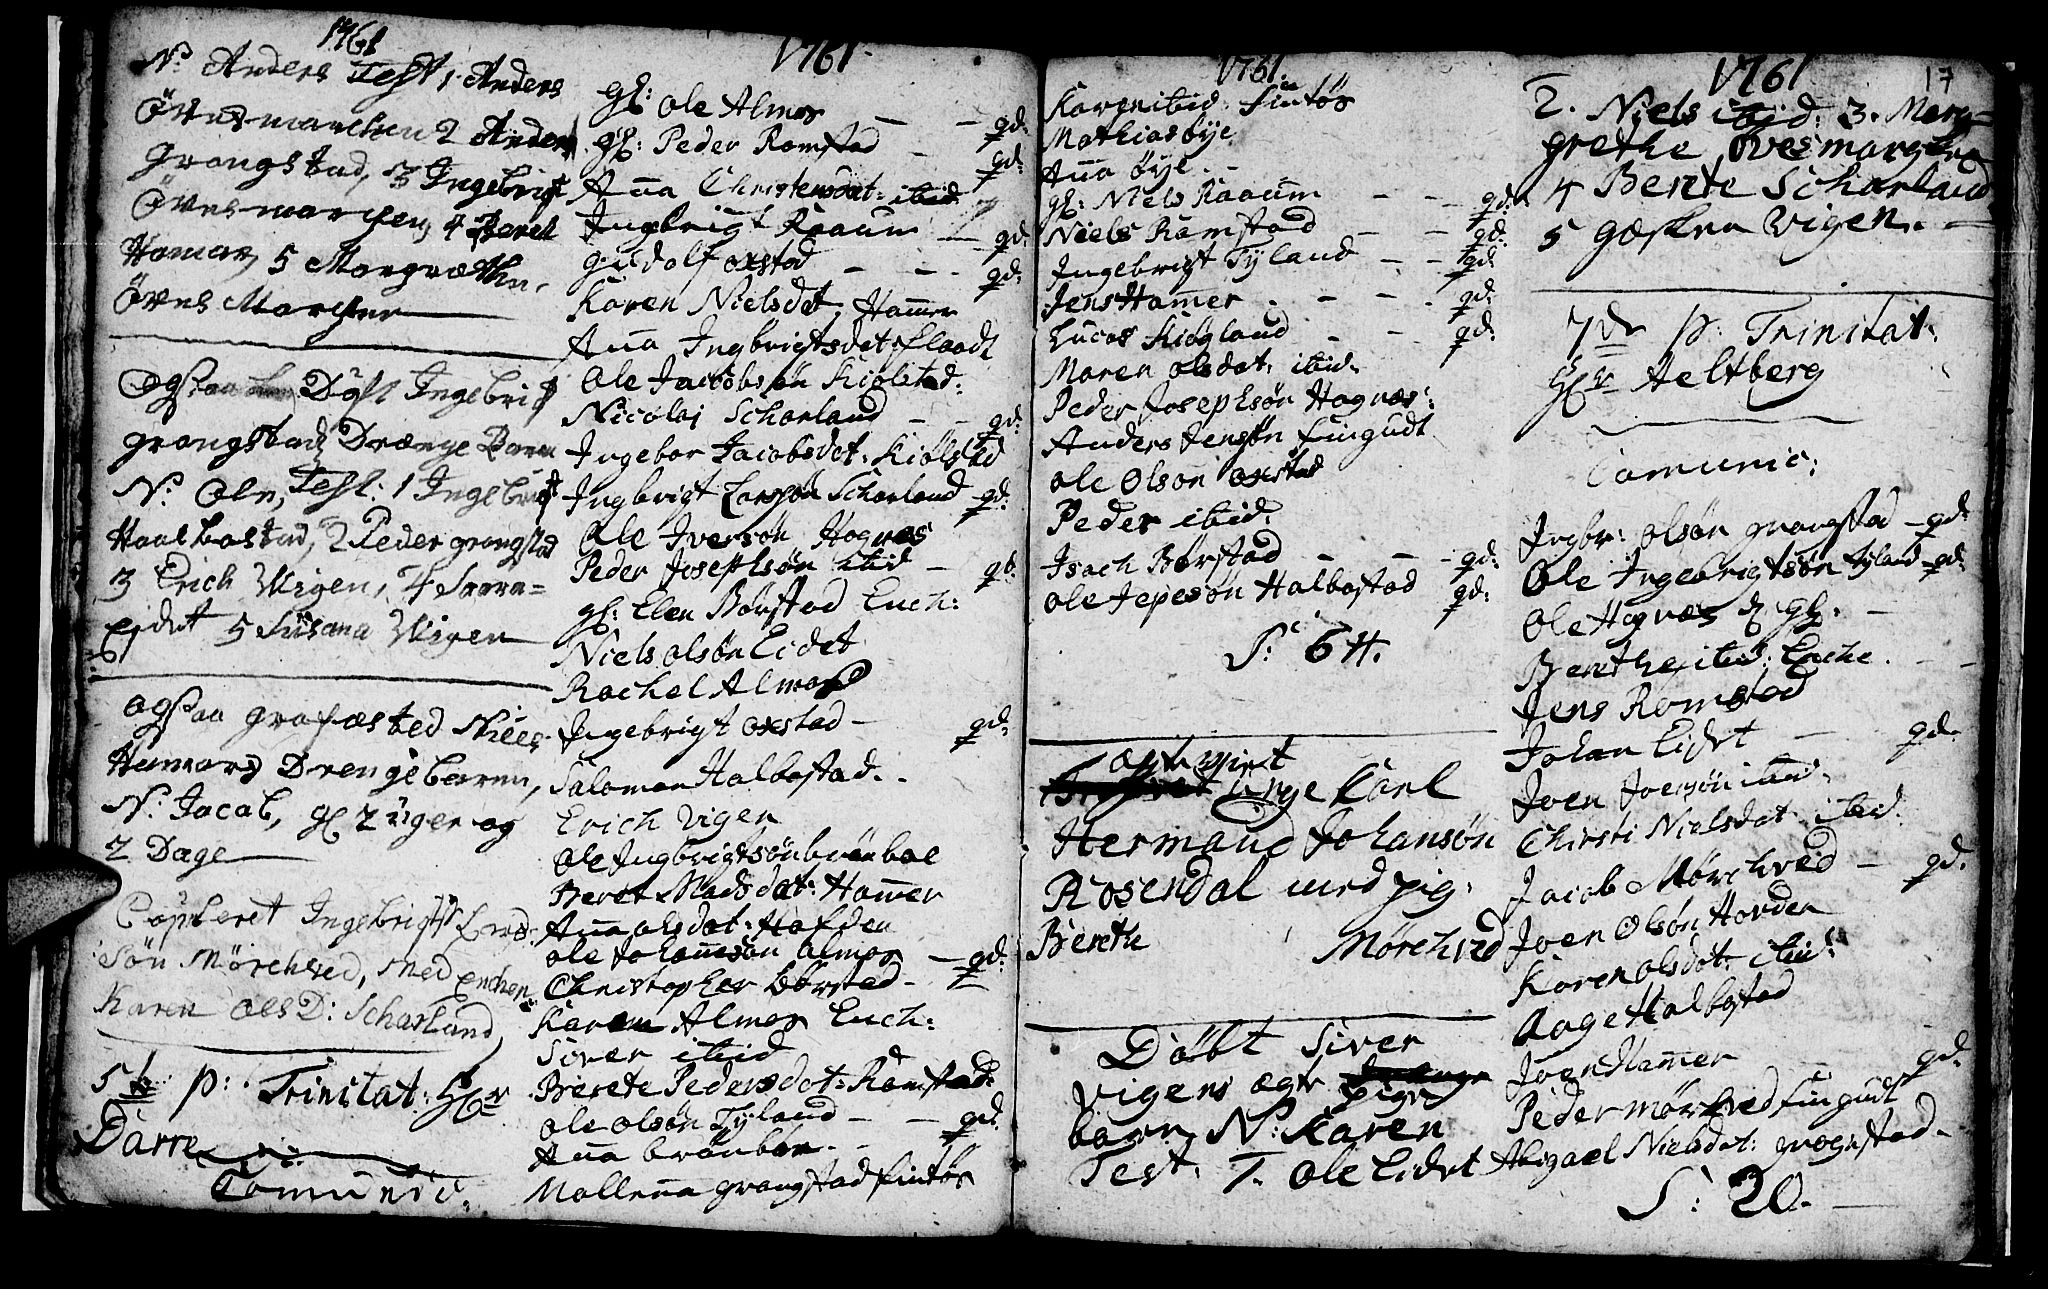 1761
N: Anders Test 1. Anders
Övesmarchen 2 Anders
grongstad, 3 Ingebrigt
Övesmarchen, 4 Beret
Hamar, 5 Margrethe
Öves Marchen
Ogsaa Døbt Ingebrigt
grongstad Drænge Baren
N: Ole, Test: 1 Ingebrigt
Haalbostad, 2 Peder grongstad
3 Erich Wigen, 4
Eidet 5 Susana Wigen
ogsaa grafæsted Niels
Hamars Drenge baren,
N: Jacob, gl 2 uger og
2 Dage
Copleret Ingebrigt
Søn Mörchved, med Enchen
Karen Oles D: Scharland
5te p: Trinitat: Hr
Darre
Comunic.
1761
gl: Ole Almos - - qd:
gl: Peder Ramstad - qd:
Anna Christensdat: ibid
Ingbrigt Raaum - qd:
gudolf oxstad - - - qd:
Karen Nielsdat, Hammer
Anna Ingbrigtsdat flaadt
Ole Jacobsøn Kiølstad:
Nicolai Scharland - - qd:
Ingebor Jacobsdat: Kiølstad
Ingbrigt Larsøn Scharland qd:
Ole Iversøn Hognæs
Peder Josephsøn ibid - qd:
gl: Elen Børstad Ench:
Niels olsøn Eidet
Rachel Almos
Ingebrigt oxstad - qd:
Salomon Halbostad. -
Erich vigen
Ole Ingbrigtsøn brönboe
Beret Madsdat: Hammer
Anna olsdat: Hafden
ole Johannesøn almos - qd:
Christopher Børstad -
Karen Almos Ench:
Siver ibid
Berete Pedersdat: Ramstad
ole olsøn Tyland - - qd:
Anna brönboe. -
Mallena grongstad fintøs
1761.
Karen ibid. fintøs
Mathias bye
Anna øye - -
gl: Niels Raaum - - - qd:
Niels Ramstad - - qd:
Ingebrigt Tyland - - qd:
Jens Hammer - - - qd:
Lucas Kiøgland - - qd:
Maren olsdat: ibid.
Peder Josephsøn Hognæs:
Anders Jensøn fingudt
ole olson oxstad
Peder ibid.
Isach Børstad - - - qd:
ole Jepesøn Halbostad qd:
S: 64.
ægtegivet
unge Karl
Hermand Johansøn
Rosendal med pig.
Bereth Mörchved
Döbt Siver
vigens ægte
pige
barn N: Karen
Test. 1. ole Eidet
1761
17
2. Niels ibid: 3. Mar-
grethe Ovesmargen
4 Berete Scharland
5 gæsken Vigen. -
7de p: Trinitat.
Hr Heltberg
Comunic:
Ingbr: olsøn grongstad - qd:
Ole Ingebrigtsøn tyland - qd:
Ole Hognæs gl. -
Berethe ibid: Enche. - -
Jens Romstad
Johan Eidet - qd.
Joen Joensøn ibid.
Chirsti Nielsdat ibid.
Jacob Mörchved - qd.
Joen Olsøn Horden
Karen olsdat: ibid:
Aage Halbostad
Joen Hammer - qd.
Peder mørchved fingudt
Abigael Nielsdat: grogestad -
S: 20. -